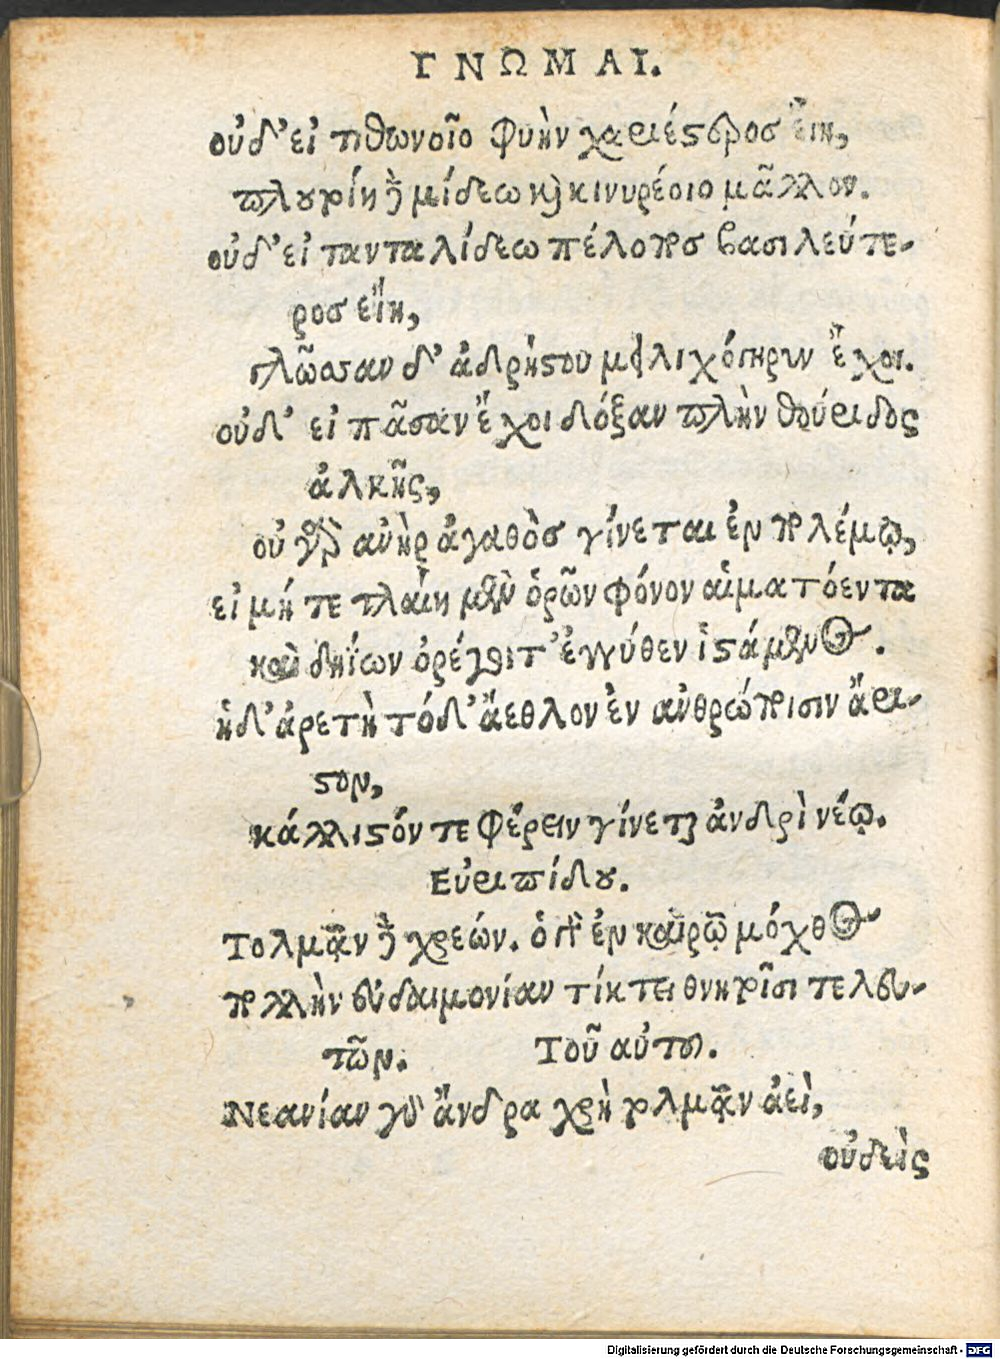 ΓΝΩΜΑΙ.
οὐδ' εἰ τιθωνοῖο φυὴν χαριέστερος εἴη,
πλουτοίη δὲ μίδεω καὶ κινυρέοιο μᾶλλον.
οὐδ' εἰ τανταλίδεω πέλοπος βασιλεύτε-
ρος εἴη,
γλῶσσαν δ' ἀδρήστου μειλιχόγηρυν ἔχοι.
οὐδ' εἰ πᾶσαν ἔχοι δόξαν πλὴν θούριδος
ἀλκῆς,
οὐ γὰρ ἀνὴρ ἀγαθὸς γίνεται ἐν πολέμῳ,
εἰ μή τε τλαίη μὲν ὁρῶν φόνον αἱματόεντα
καὶ δηΐων ὀρέγοιτ' ἐγγύθεν ἱστάμενος.
ἡδ' ἀρετὴ τόδ' ἄεθλον ἐν ἀνθρώποισιν ἄρι-
στον,
κάλλιστόν τε φέρειν γίνεται ἀνδρὶ νέῳ.
Εὐριπίδου.
Τολμᾷν δὲ χρεών. ὁ γὰρ ἐν καιρῷ μόχθος
πολλὴν εὐδαιμονίαν τίκτει θνητοῖσι τελευ-
τῶν. Τοῦ αὐτοῦ.
Νεανίαν γὰρ ἄνδρα χρὴ τολμᾷν ἀεὶ,
οὐδεὶς
Digitalisierung gefördert durch die Deutsche Forschungsgemeinschaft - DFG